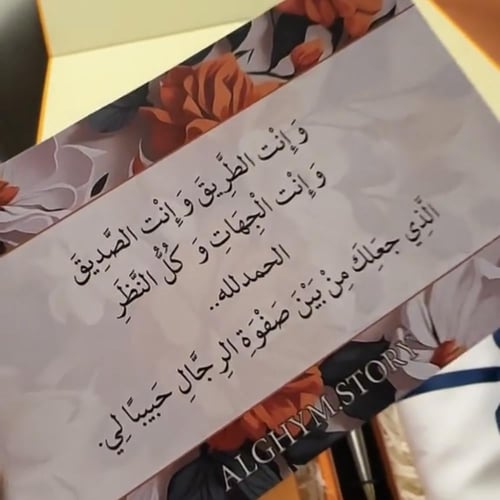 وَإِنْت الطَّرِيقَ وَإِنْت الصَّدِيقَ
وَإِنْت الْجِهَاتِ وَ كُلُّ النَّظَرِ
الحمدلله..
الَّذِي جعلك مِنْ بَيْنَ صَفْوَةِ الرِجَّالِ حَبِيبًا لِي.
ALGHYM.STORY